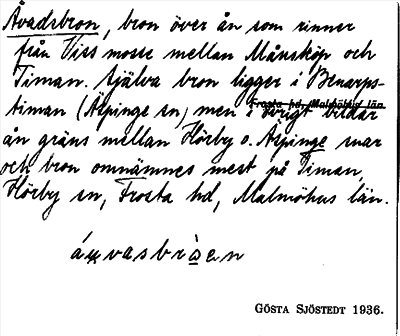 Åvadsbron, bron över ån som rinner
från Viss mosse mellan Månsköp och
Timan. Själva bron ligger i Benarps-
timan (Äspinge sn) men i övrigt bildar
Frosta hd, Malmöhus län
ån gräns mellan Hörby o. Äspinge snar
och bron omnämnes mest på Timan,
Hörby sn, Frosta hd, Malmöhus län.
GÖSTA SJÖSTEDT 1936.